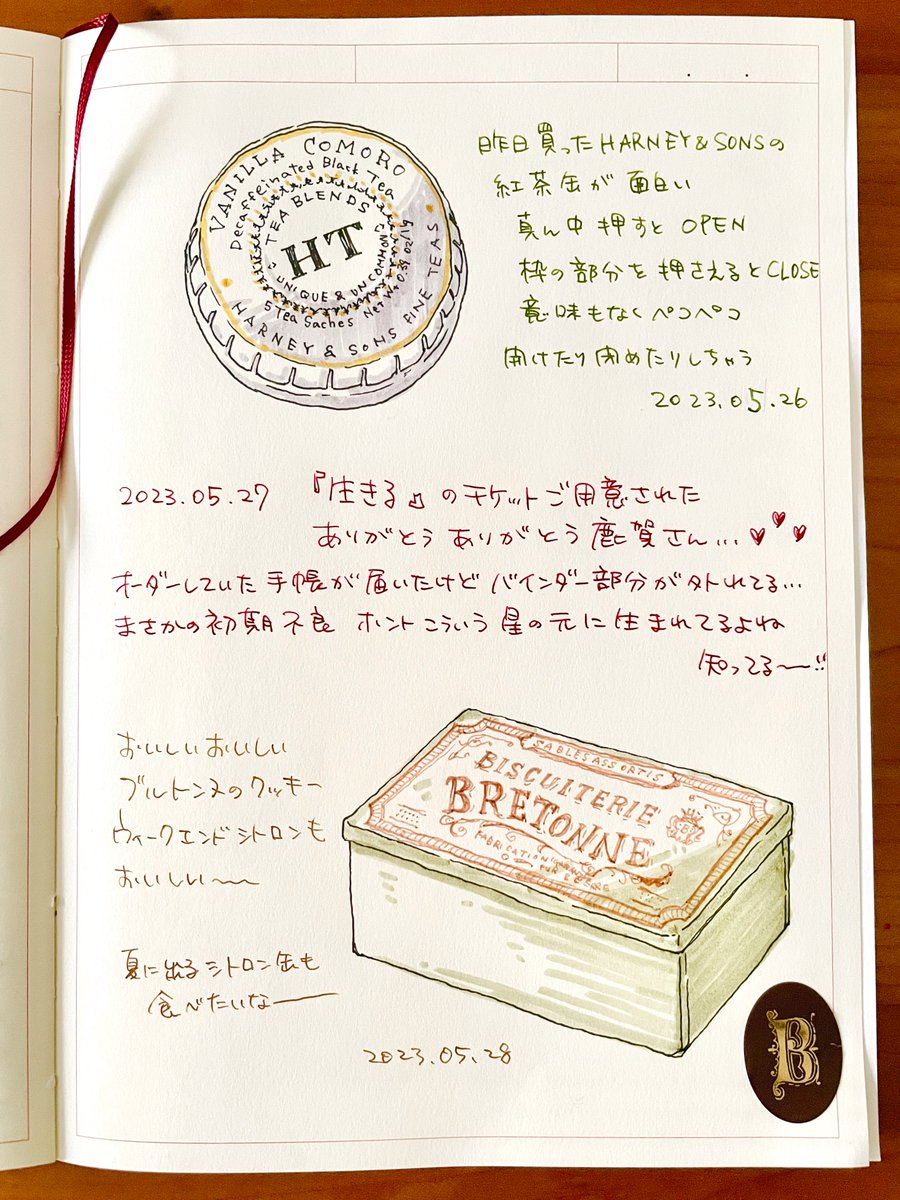 VANILLA COMORO
Decaffeinated Black Tea
TEA BLENDS
HT
UNIQUE & UNCOMMON
5 Tea Saches Net Wt
HARNEY & SONS FINE TEAS
昨日買ったHARNEY&SONSの
紅茶缶が面白い
真ん中押すとOPEN
枠の部分を押さえるとCLOSE
意味もなくペコペコ
開けたり閉めたりしちゃう
2023.05.26
2023.05.27 『生きる』のチケットご用意された
ありがとうありがとう鹿賀さん…
オーダーしていた手帳が届いたけどバインダー部分が外れてる…
まさかの初期不良 ホントこういう星の元に生まれてるよね
知ってる〜!!
おいしいおいしい
ブルトンヌのクッキー
ウィークエンドシトロンも
おいしい〜
夏に出るシトロン缶も
食べたいなー
2023.05.28
SABLES ASSORTIS
BISCUITERIE
BRETONNE
FABRICATION
PUR BEURRE
B